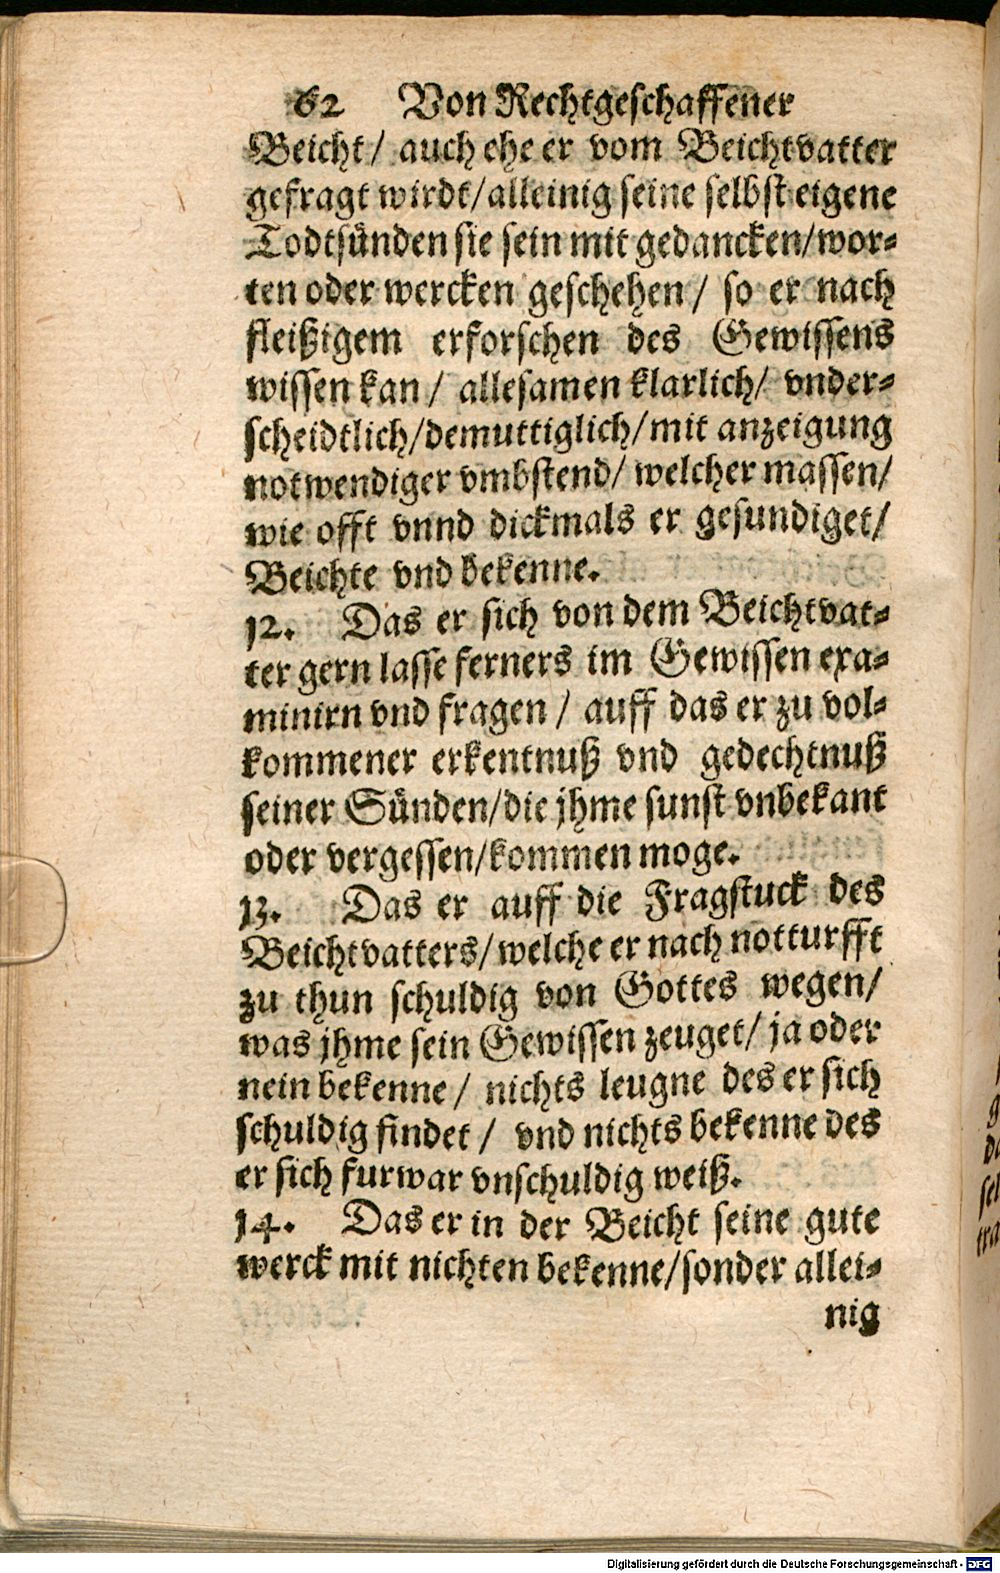 62 Von Rechtgeschaffener
Beicht/ auch ehe er vom Beichtvatter
gefragt wirdt/alleinig seine selbst eigene
Todtsünden sie sein mit gedancken/wor-
ten oder wercken geschehen/ so er nach
fleißigem erforschen des Gewissens
wissen kan/ allesamen klarlich/ vnder-
scheidtlich/demuttiglich/mit anzeigung
notwendiger vmbstend/ welcher massen/
wie offt vnnd dickmals er gesundiget/
Beichte vnd bekenne.
12. Das er sich von dem Beichtvat-
ter gern lasse ferners im Gewissen exa-
minirn vnd fragen/ auff das er zu vol-
kommener erkentnuß vnd gedechtnuß
seiner Sünden/die jhme sunst vnbekant
oder vergessen/kommen moge.
13. Das er auff die Fragstuck des
Beichtvatters/welche er nach notturfft
zu thun schuldig von Gottes wegen/
was jhme sein Gewissen zeuget/ ja oder
nein bekenne/ nichts leugne des er sich
schuldig findet/ vnd nichts bekenne des
er sich furwar vnschuldig weiß.
14. Das er in der Beicht seine gute
werck mit nichten bekenne/sonder allei-
nig
Digitalisierung gefördert durch die Deutsche Forschungsgemeinschaft - DFG